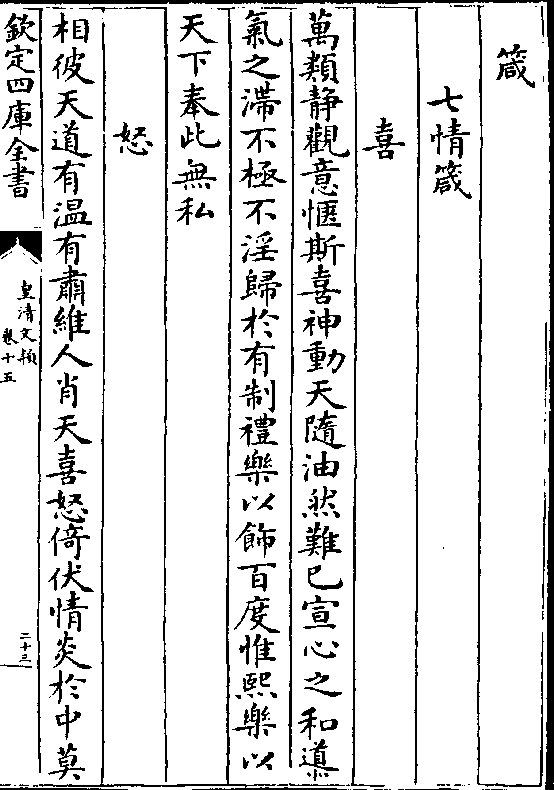 箴
七情箴
喜
萬類静觀意愜斯喜神動天隨油然難已宣心之和導
氣之滯不極不淫歸於有制禮樂以飾百度惟熙樂以
天下奉此無私
怒
相彼天道有温有肅維人肖天喜怒倚伏情炎於中莫
欽定四庫全書
皇清文頴
卷十五
二十三